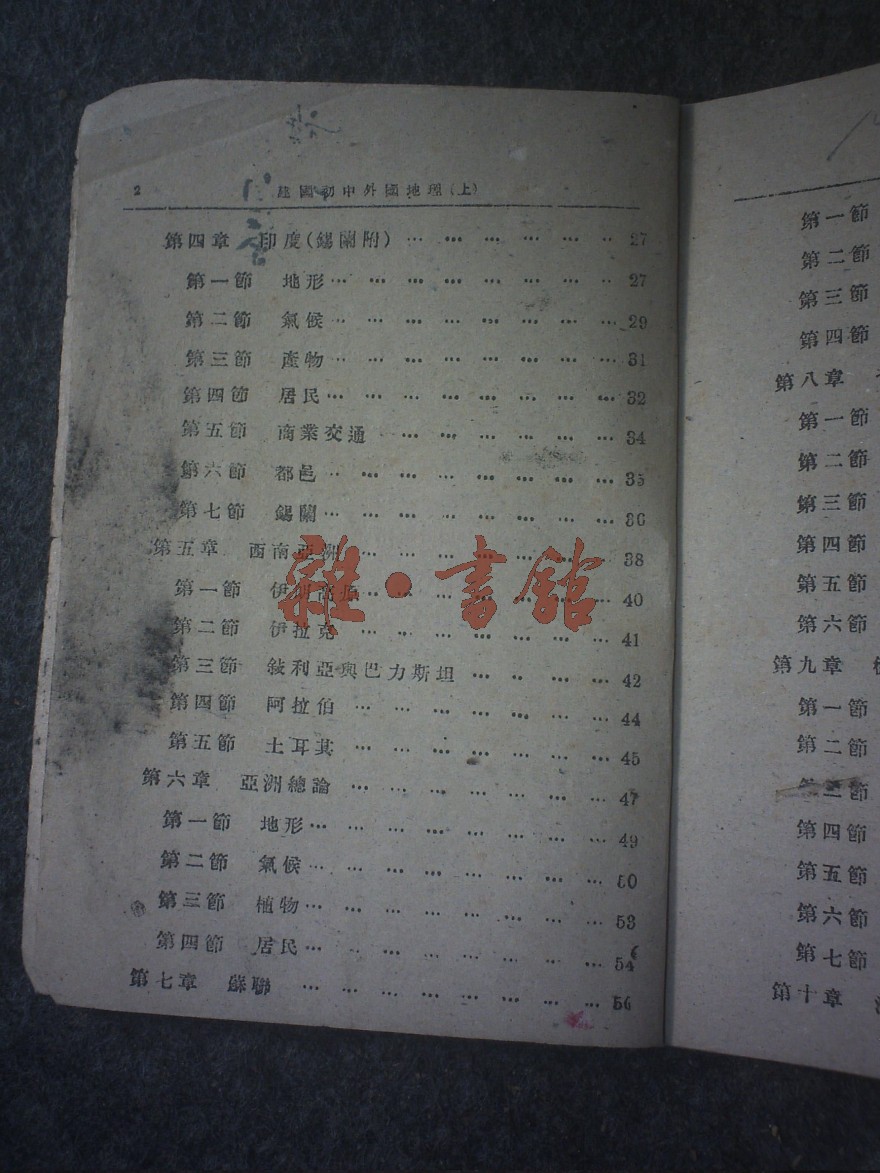 2 建國初中外國地理(上)
第四章 印度(錫蘭附) … … … … … … 27
第一節 地形 … … … … … … … … 27
第二節 氣候 … … … … … … … … 29
第三節 產物 … … … … … … … … 31
第四節 居民 … … … … … … … … 32
第五節 商業交通 … … … … … … 34
第六節 都邑 … … … … … … … … 35
第七節 錫蘭 … … … … … … … … 36
第五章 西南亞洲 … … … … … … … 38
第一節 伊朗高原 … … … … … … … 40
第二節 伊拉克 … … … … … … … … 41
第三節 敍利亞與巴力斯坦 … … … … 42
第四節 阿拉伯 … … … … … … … … 44
第五節 土耳其 … … … … … … … … 45
第六章 亞洲總論 … … … … … … … 47
第一節 地形 … … … … … … … … … 49
第二節 氣候 … … … … … … … … … 50
第三節 植物 … … … … … … … … … 53
第四節 居民 … … … … … … … … … 54
第七章 蘇聯 … … … … … … … … … 56
雜·書館
第一節
第二節
第三節
第四節
第八章
第一節
第二節
第三節
第四節
第五節
第六節
第九章
第一節
第二節
第三節
第四節
第五節
第六節
第七節
第十章